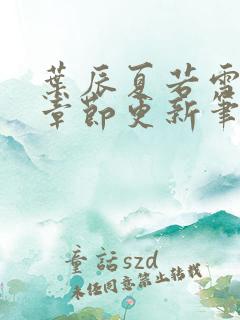 葉辰夏若雪
章節更新筆
童話szd
未经同意禁止转载